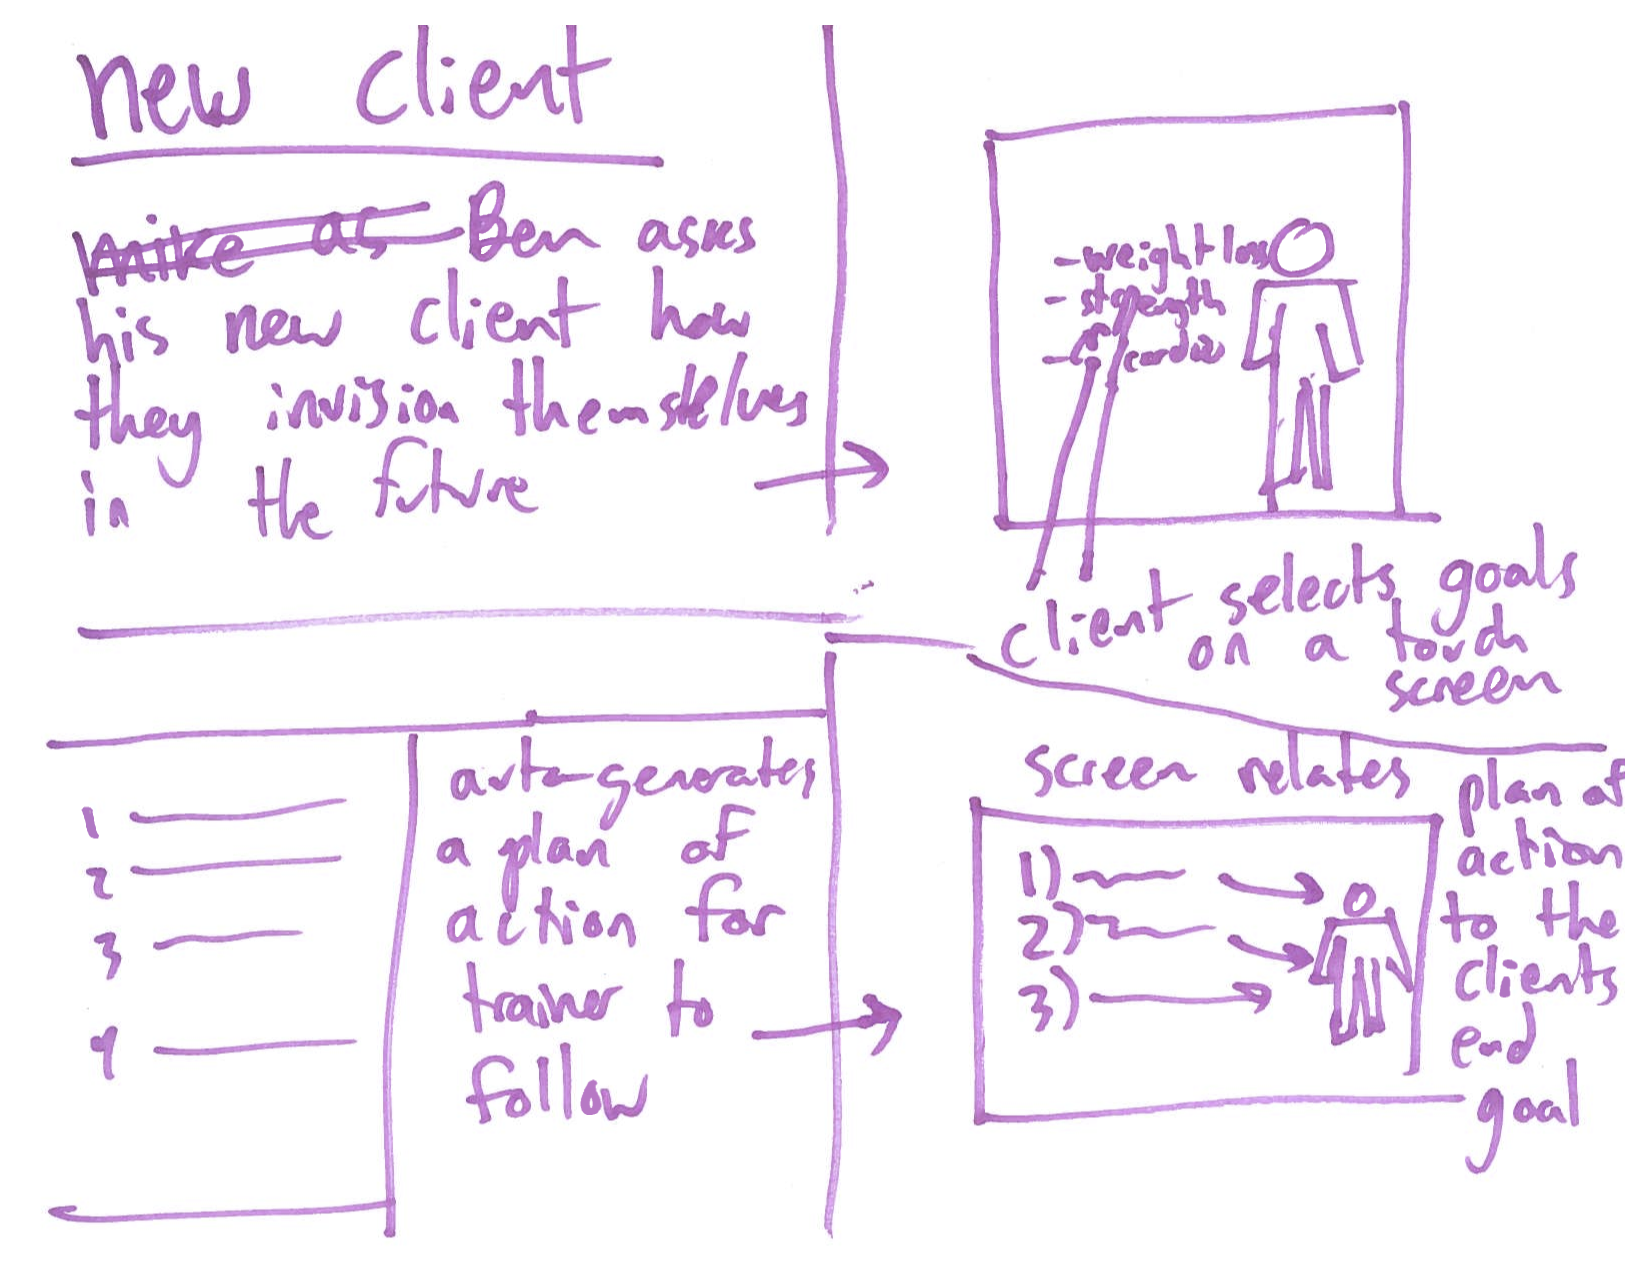 new client
mike as Ben asks
his new client how
they invision themselves
in the future
- weight loss
- strength
- cardio
client selects goals
on a touch
screen
1
2
3
4
auto-generates
a plan of
action for
trainer to
follow
screen relates
plan of
action
to the
clients
end
goal
1)
2)
3)